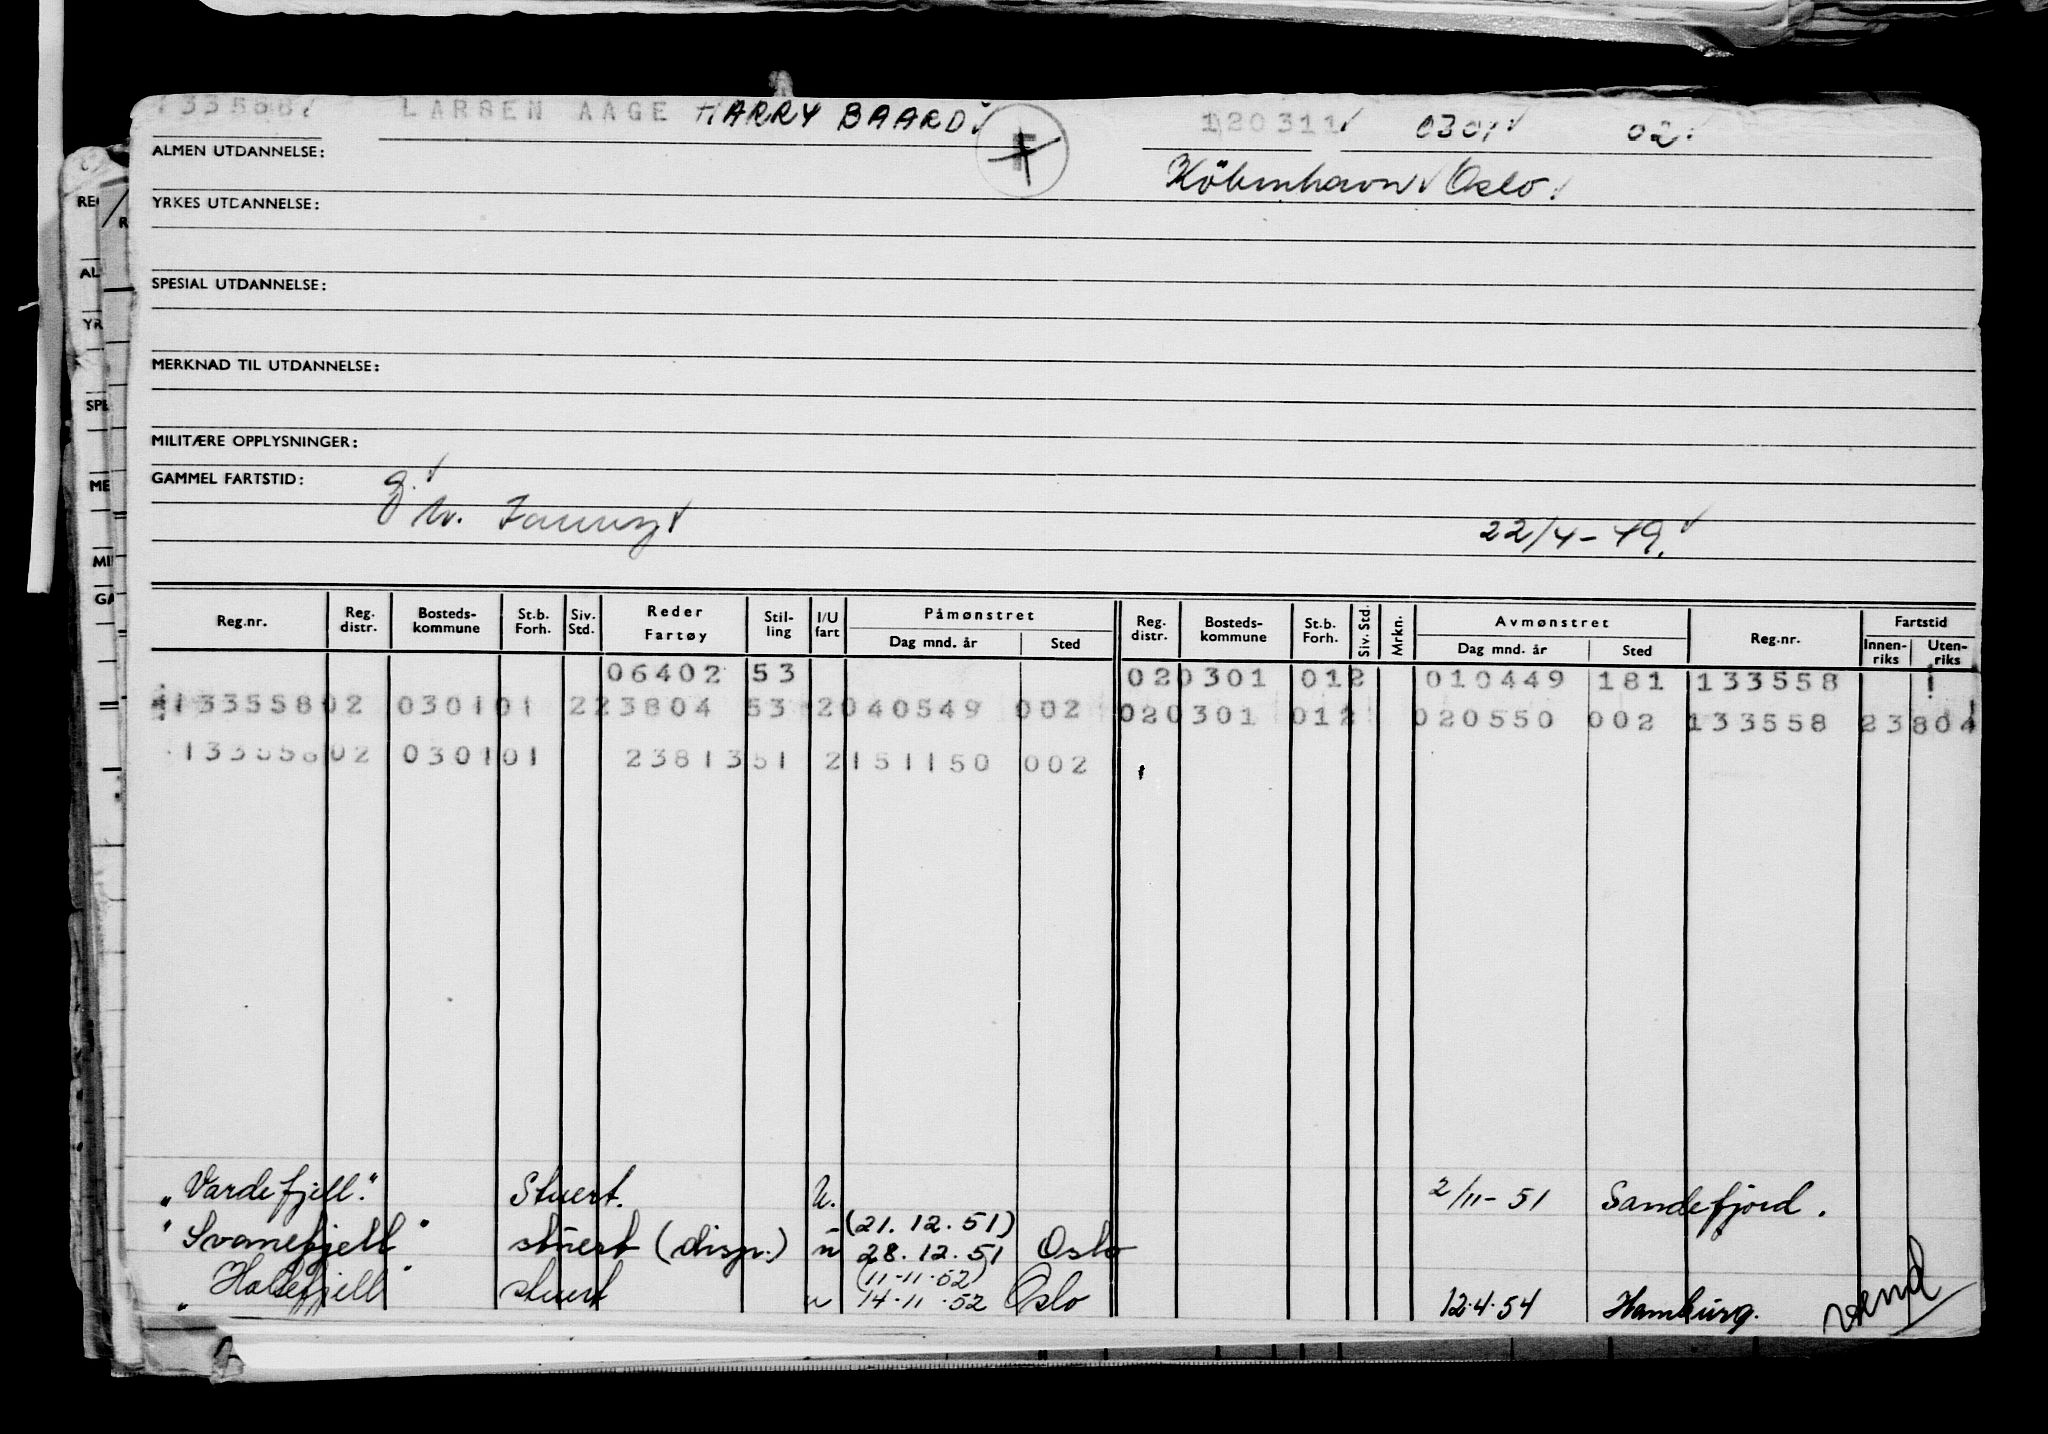 133558 LARSEN AAGE HARRY BAARD F 120311 0301 02.
ALMEN UTDANNELSE: Köbenhavn Oslo.
YRKES UTDANNELSE:
SPESIAL UTDANNELSE:
MERKNAD TIL UTDANNELSE:
MILITÆRE OPPLYSNINGER:
GAMMEL FARTSTID:
22/4-49.
Reg.nr. Reg. distr. Bosteds-kommune St.b. Forh. Siv. Std. Reder Fartøy Stil-ling I/U fart Påmønstret Dag mnd. år Sted Reg. distr. Bosteds-kommune St.b. Forh. Siv. Std. Mrkn. Avmønstret Dag mnd. år Sted Reg.nr. Fartstid Innen-riks Uten-riks
06402 53 020301 012 010449 181 133558
133558 02 030101 2 23804 53 2 040549 002 020301 012 020550 002 133558 23804
133558 02 030101 23813 51 2 151150 002
"Vardefjell." Stuert. U. 2/11-51 Sandefjord.
(21.12.51)
"Svanefjell" stuert (disp.) u 28.12.51 Oslo
(11-11-52)
" stuert u 14-11-52 Oslo 12.4.54 Hamburg.
vend